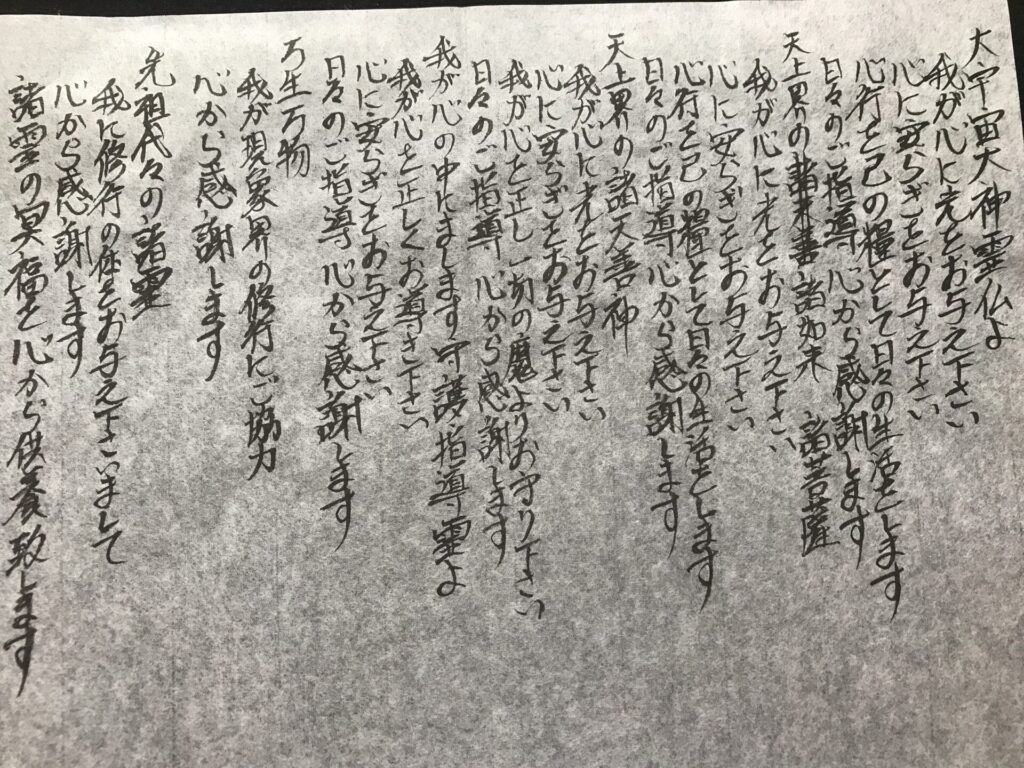 大宇宙大神霊仏よ
我が心に光をお与え下さい
心に安らぎをお与え下さい
心行を己の糧として日々の生活をします
日々のご指導 心から感謝します
天上界の諸来 諸如来 諸菩薩
我が心に光をお与え下さい
心に安らぎをお与え下さい
心行を己の糧として日々の生活をします
日々のご指導 心から感謝します
天上界の諸天善神
我が心に光をお与え下さい
心に安らぎをお与え下さい
我が心を正し一切の魔よりお守り下さい
日々のご指導 心から感謝します
我が心の中にまします守護指導霊よ
我が心を正しくお導き下さい
心に安らぎをお与え下さい
日々のご指導 心から感謝します
万生万物
我が現象界の修行にご協力
心から感謝します
先祖代々の諸霊
我に修行の体をお与え下さいまして
心から感謝します
諸霊の冥福を心から供養致します